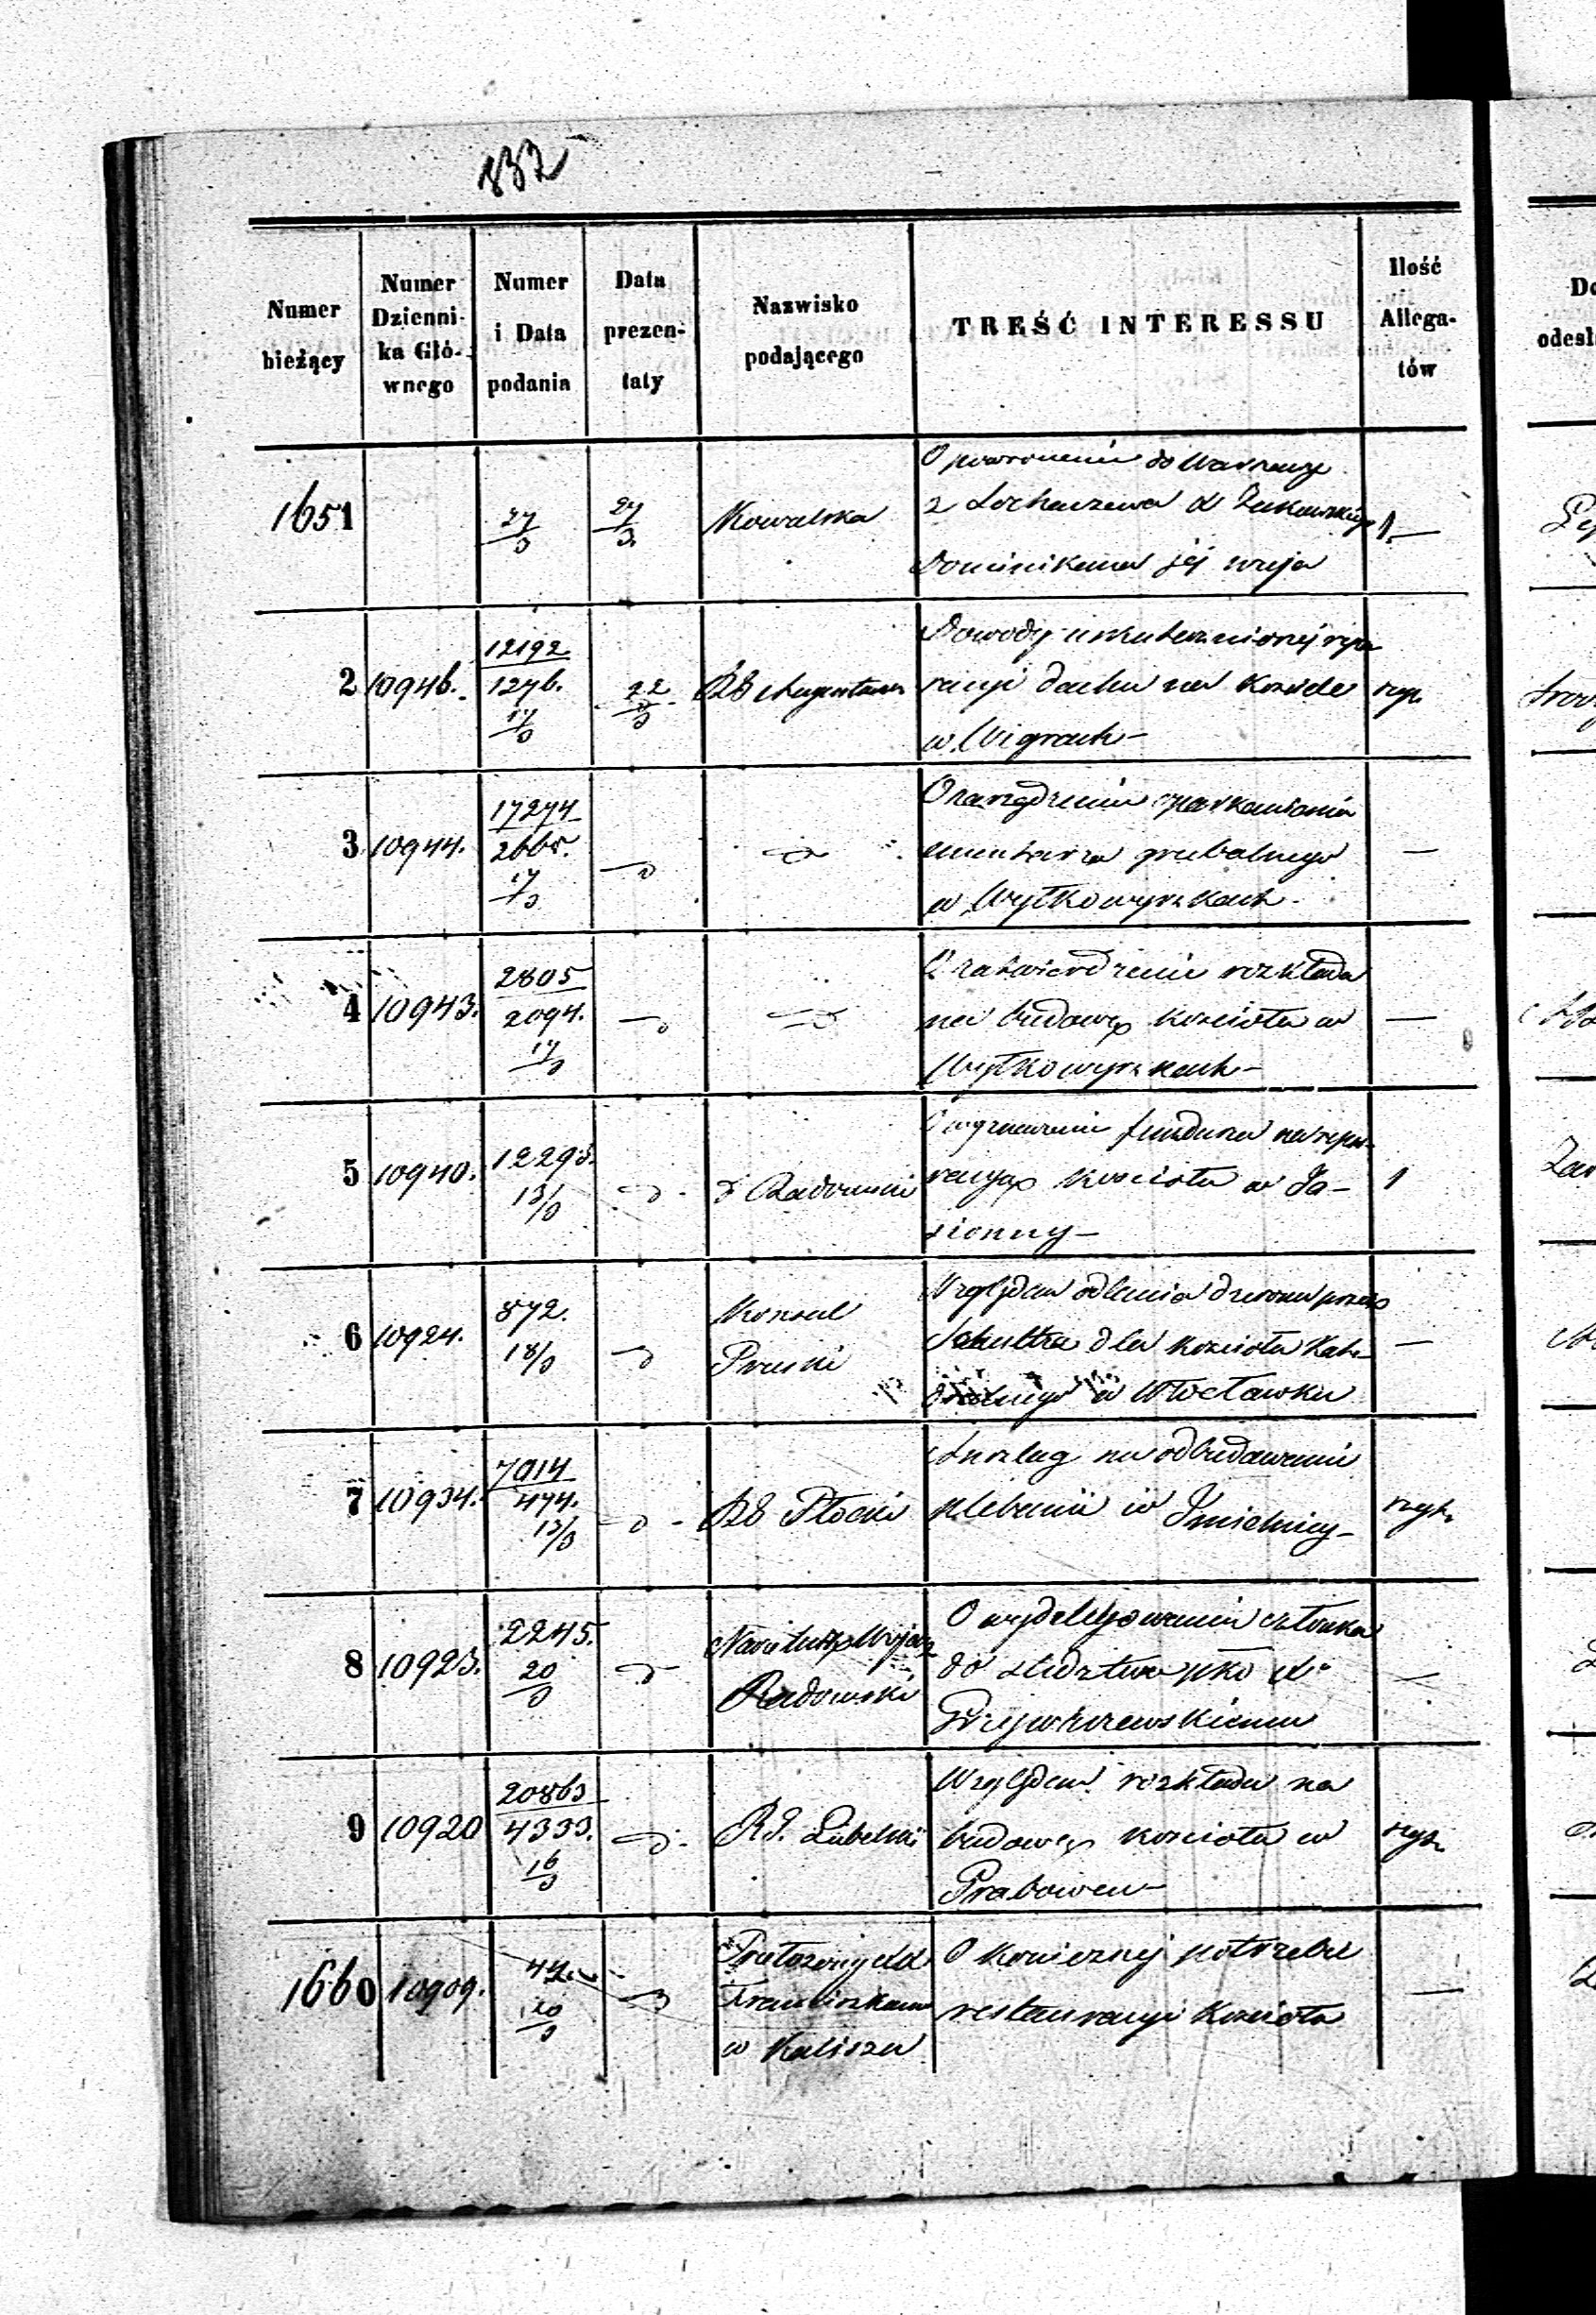 832
Numer bieżący
Numer Dzienni- ka Głó- wnego
Numer i Data podania
Data prezen- taty
Nazwisko podającego
TREŚĆ INTERESSU
Ilość Allega- tów
1651 27/3 27/3 Kowalska 1 —
O powróceniu do Warszawy
z Sochaczewa X Żukowskiego
Dominikana jej wuja
2 10946. 12192 1276. 17/3 22/3 RG Augustows.
Dowody uskutecznionej repa
racyi dachu na Kościele
w Wigrach —
3 10944. 17274 2665. 17/3 —
O zarządzenie oparkanienia
cmentarza grzebalnego
w Wyłkowyszkach
4 10943. 2805 2094. 17/3 —
O zatwierdzenie rozkładu
na budowę kościoła w
Wyłkowyszkach —
5 10940. 12295. 13/3 Radomski 1
O wyznaczenie funduszu na repa-
racyę kościoła w Ja-
sionny —
6 10924. 872. 18/3 Konsul Pruski —
Względem odlania dzwonu przez
Schultza dla kościoła Kate-
dralnego w Włocławku
7 10934. 7014 474. 13/3 RG Płocki
Anszlag na odbudowanie
plebanii w Imielnicy —
8 10923. 2245. 20/3 Radowski —
O wydelegowanie członka
do śledztwa pko X
9 10920 20863 4333. 16/3 RG. Lubelski
Względem rozkładu na
budowę kościoła w
1660 10909. 44 20/3 —
Przełożony XX
Franciszkanów
w Kaliszu
O koniecznej potrzebie
restauracyi Kościoła